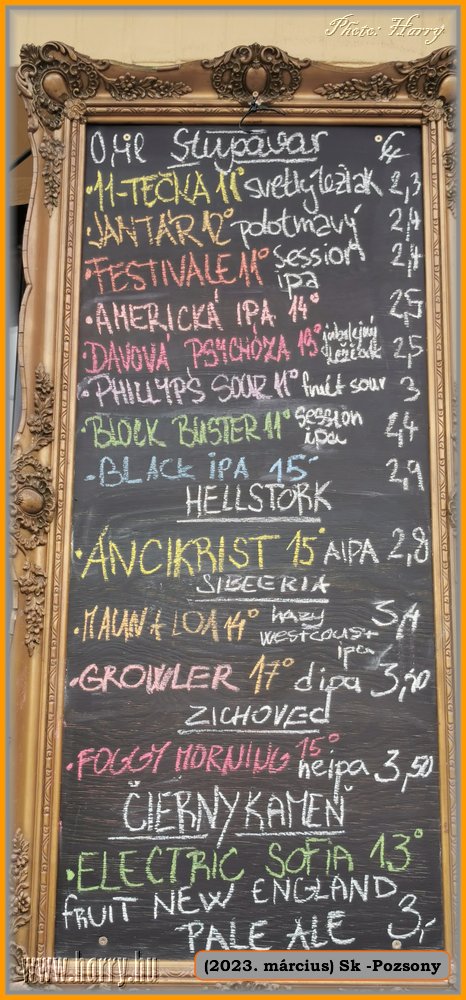 Photo: Harry
0,4l Stupavar €
•11-TEČKA 11° svetlý ležiak 2,3
•JANTÁR 12° polotmavý 2,4
•FESTIVALE 11° session ipa 2,4
•AMERICKÁ IPA 14° 2,5
DAVOVÁ PSYCHÓZA 13° ležiak 2,5
•PHILLYP'S SOUR 11° fruit sour 3
•BLOCK BUSTER 11° session ipa 2,4
•BLACK IPA 15° 2,9
HELLSTORK
•ANCIKRIST 15° AIPA 2,8
SIBEERIA
•MAUNA LOA 14° hazy westcoast ipa 3,4
•GROWLER 17° dipa
ZICHOVEC
•FOGGY MORNING 15° neipa 3,50
ČIERNY KAMEŇ
•ELECTRIC SOFIA 13°
FRUIT NEW ENGLAND
PALE ALE 3,-
www.horry.hu
(2023. március) Sk -Pozsony